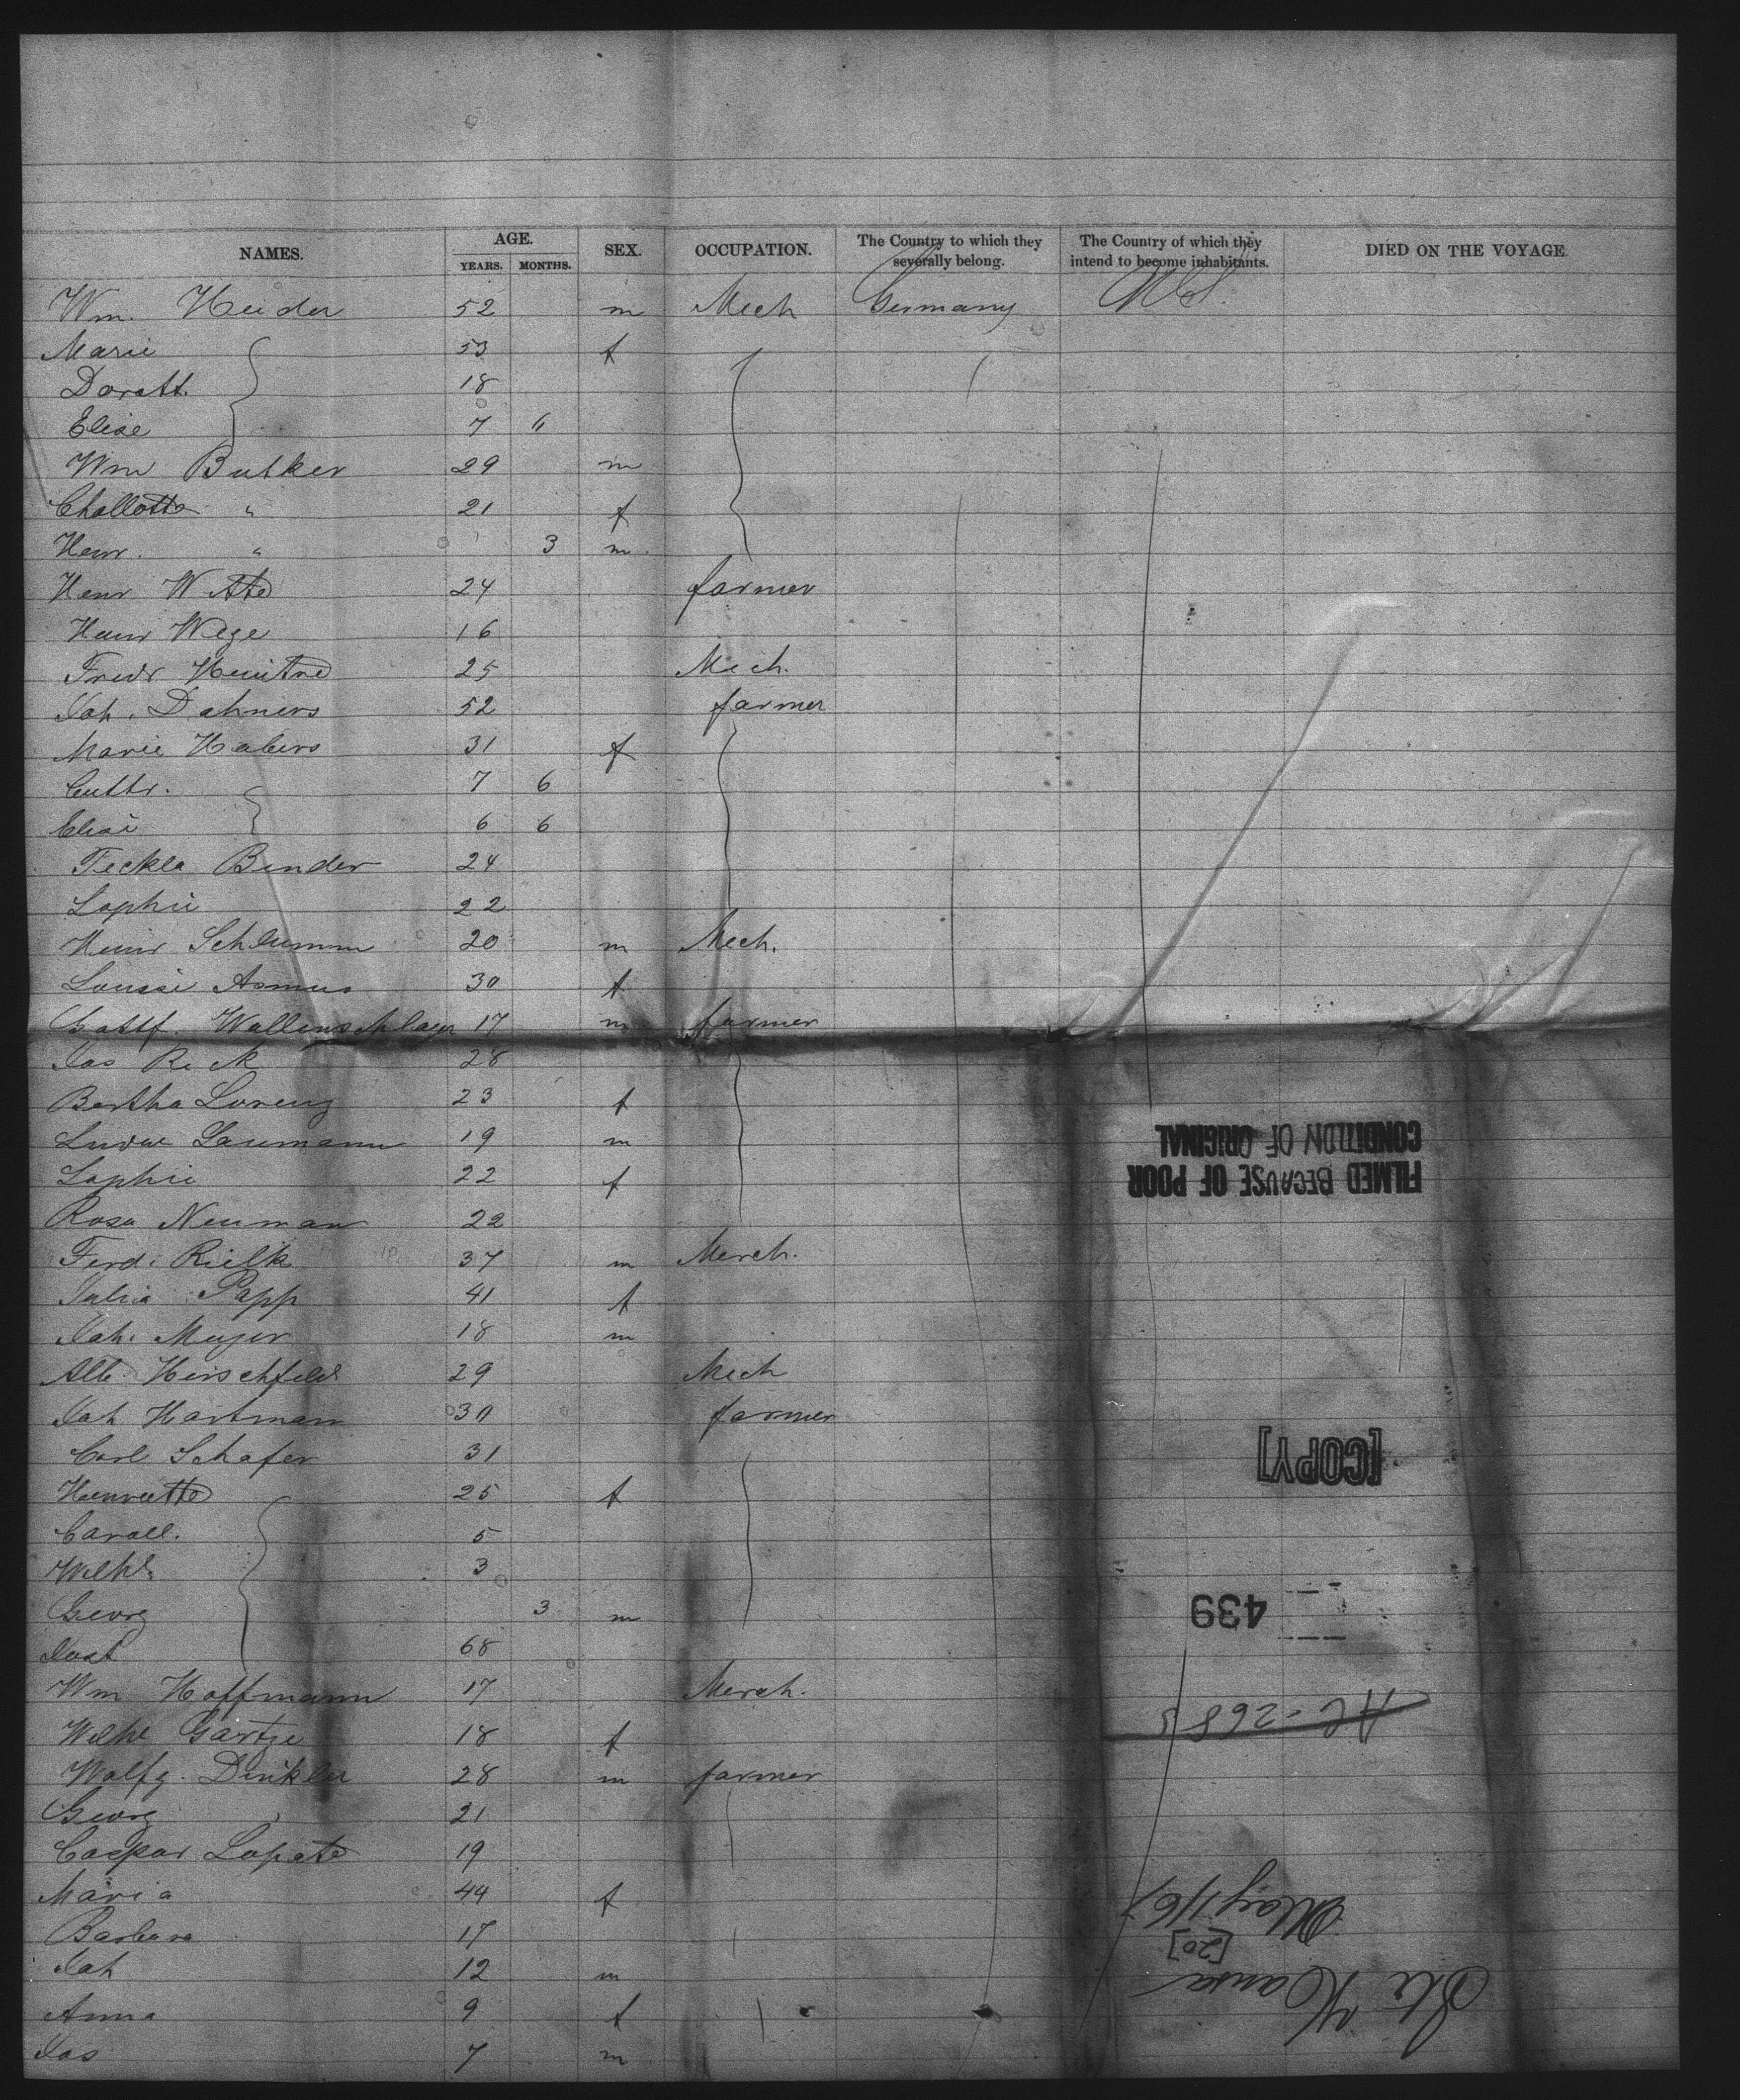 NAMES. AGE. SEX. OCCUPATION. The Country to which they severally belong. The Country of which they intend to become inhabitants. DIED ON THE VOYAGE.
YEARS. MONTHS.
Wm. Heider 52 m Mech Germany U.S.
Marie 53 f
Doratt. 18
Elise 7 "
Wm Butker 29 m
Challotte " 21 f
Henr. " 3 m
Henr Witte 24 farmer
Henr Wege 16
Fredr 25 Mech.
Joh. Dahners 52 farmer
Marie Habers 31 f
7 6
Elise 6 6
Teckla Binder 24
Sophie 22
Heinr Schlumm 20 m Mech.
Louise Asmus 30 f
Gottf. Wallenschlager 17 m farmer
Jos Reck 28
Bertha Lorenz 23 f
Ludw Laumann 19 m
Sophie 22 f
Rosa Neuman 22
Ferd. Rielk 37 m Merch.
Julia Papp 41 f
Joh. Meyer 18 m
Alb. Hirschfeld 29 Mech
Joh Hartman 30 farmer
Carl Schafer 31
Henriette 25 f
Caroll. 5
Wilhl. 3
Georg 3 m
Jost 68
Wm Hoffmann 17 Merch.
Wilhe Gartze 18 f
Wolfg. Dinkler 28 m farmer
Georg 21
Caspar Lopate 19
Maria 44 f
Barbara 17
Joh 12 m
Anna 9 f
Jos 7 m
Str Hansa
[20]
May 1/67
AC-268
439
[COPY]
FILMED BECAUSE OF POOR
CONDITION OF ORIGINAL